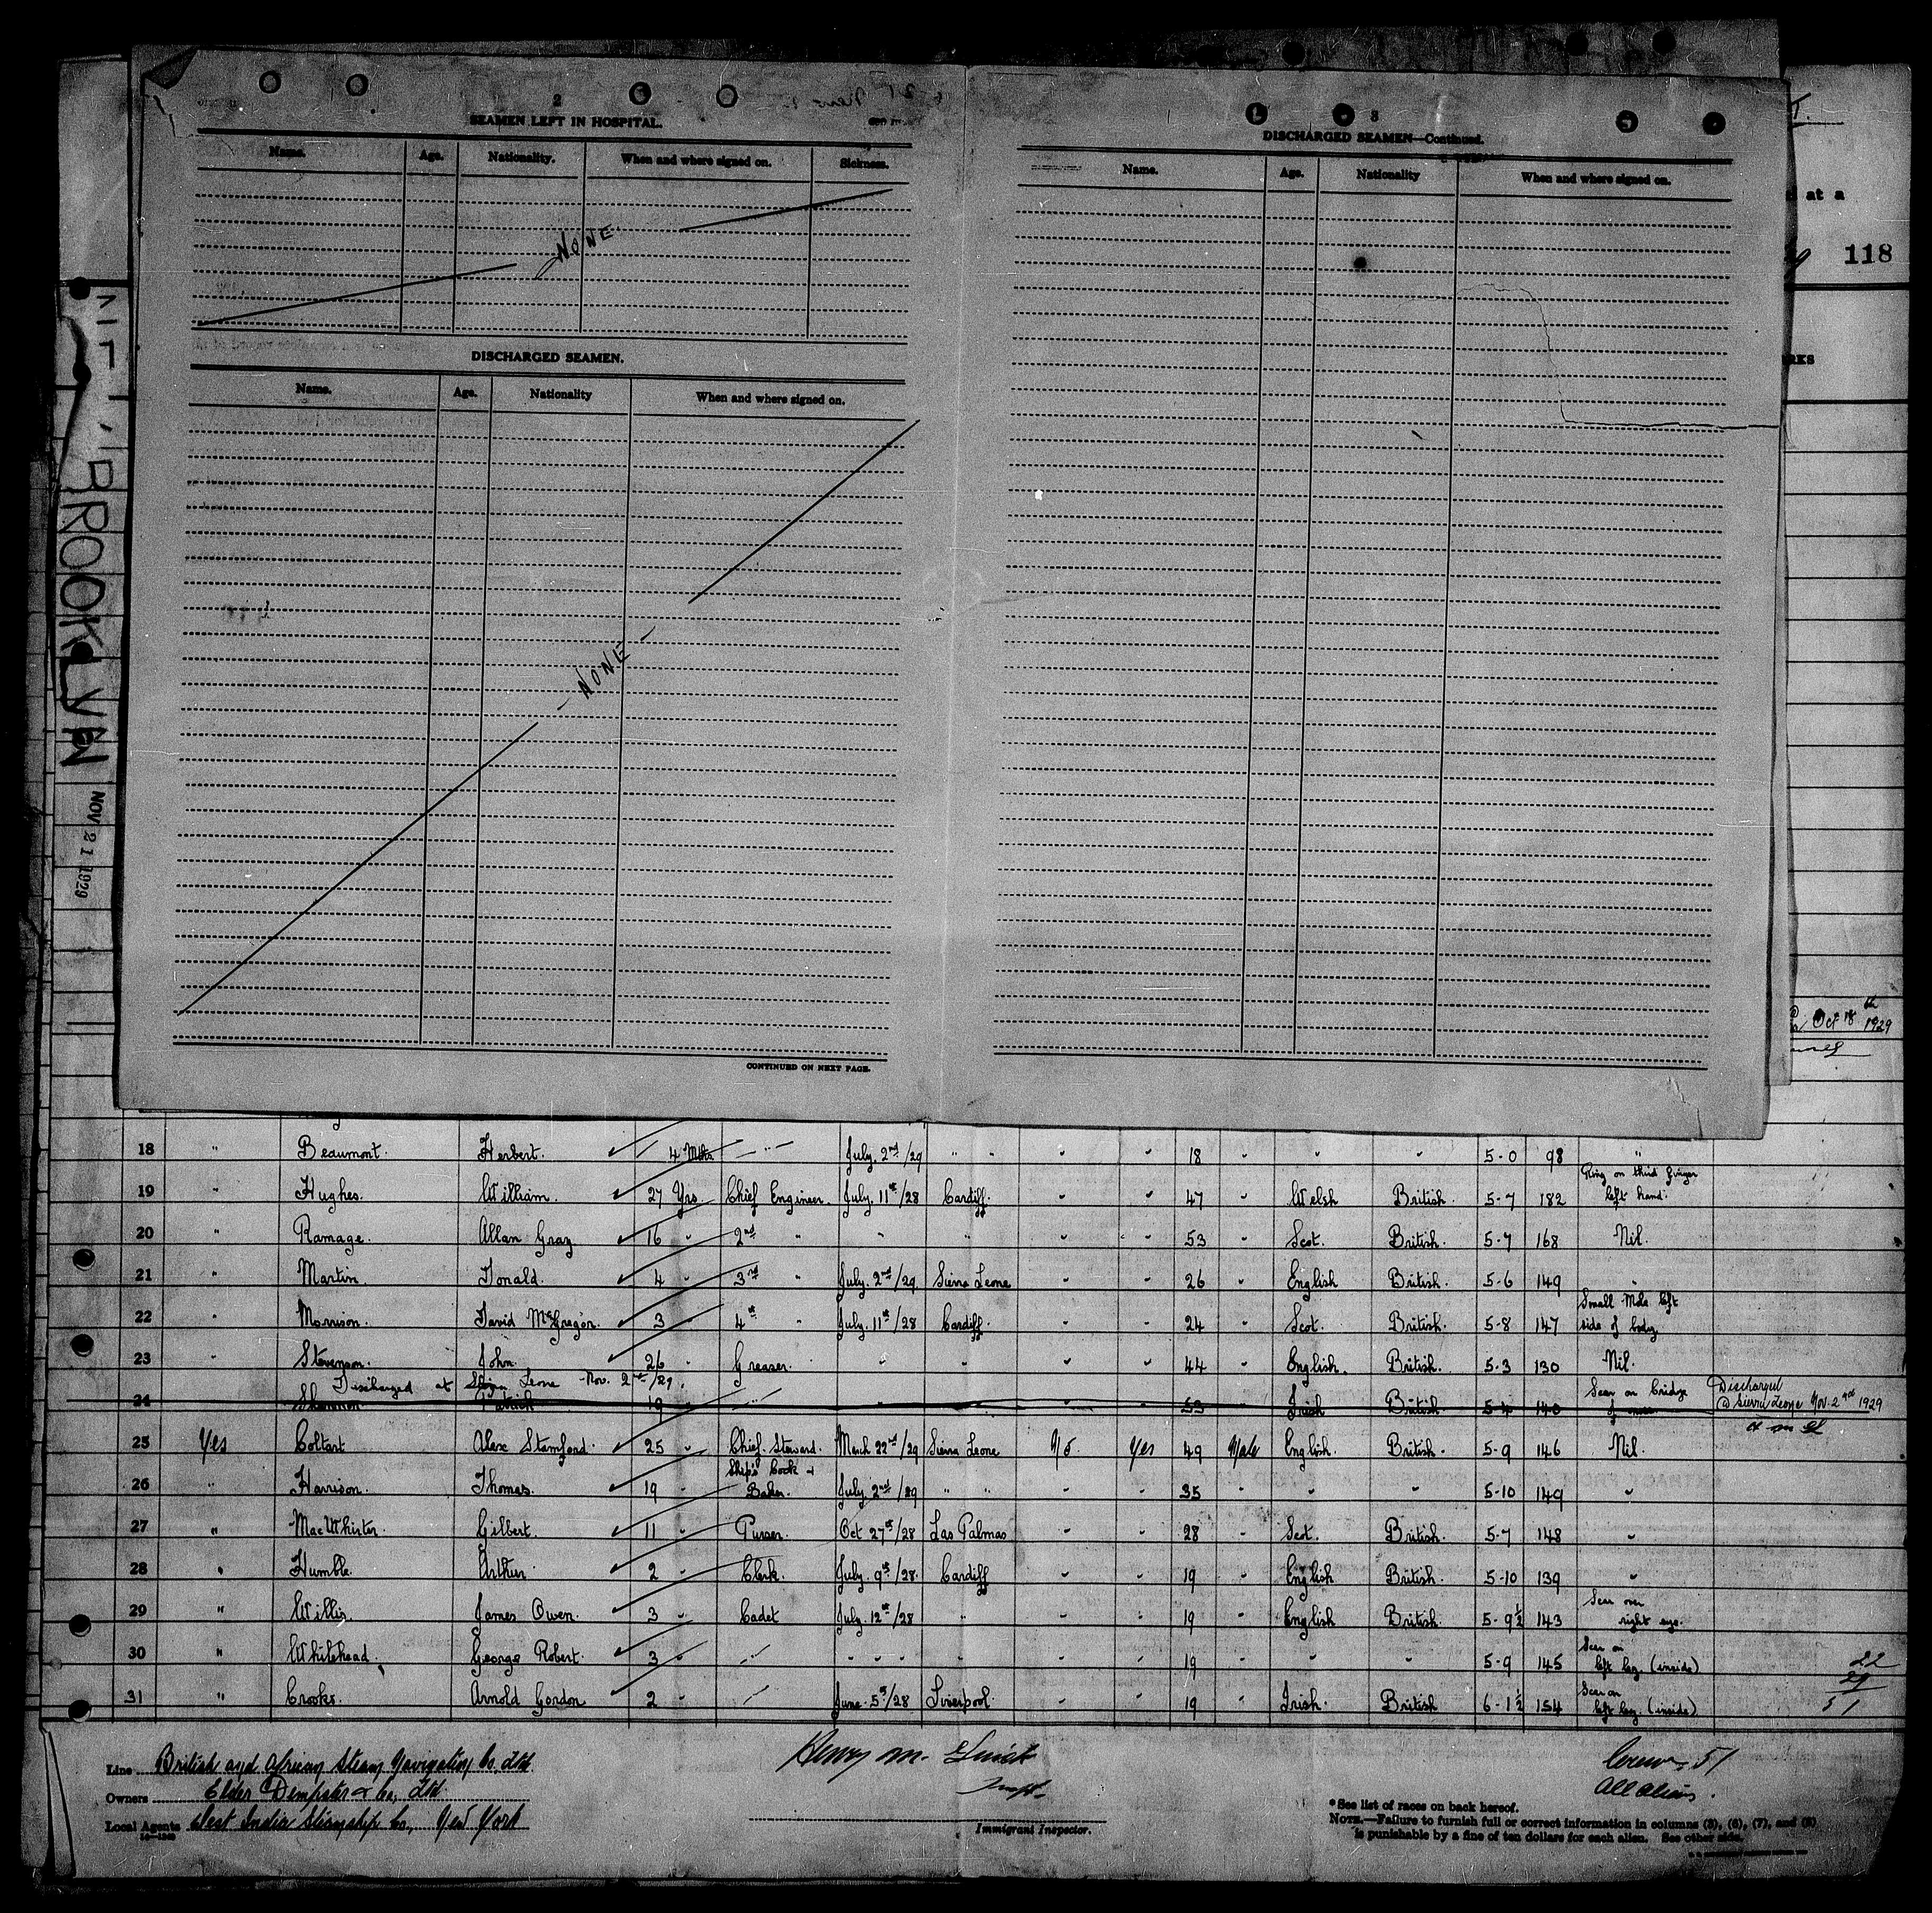 2
SEAMEN LEFT IN HOSPITAL.
Name. Age. Nationality. When and where signed on. Sickness.
NONE.
DISCHARGED SEAMEN.
Name. Age. Nationality When and where signed on.
- NONE -
CONTINUED ON NEXT PAGE.
3
DISCHARGED SEAMEN—Continued.
Name. Age. Nationality When and where signed on.
at a
118
BROOKLYN
NOV 21 1929
Oct 18th 1929
18 " Beaumont. Herbert. 4 Mths " July. 2nd/29 " " " " 18 " " " 5-0 98 "
19 " Hughes. William. 27 Yrs. Chief Engineer. July. 11th/28 Cardiff. " " 47 " Welsh British. 5-7 182 Ring on third finger left hand.
20 " Ramage. Allan Gray 16 " 2nd " " " " " 53 " Scot. British. 5-7 168 Nil.
21 " Martin. Donald. 4 " 3rd " July. 2nd/29 Sierra Leone " " 26 " English British. 5-6 149 "
22 " Morrison. David McGregor. 3 " 4th " July. 11th/28 Cardiff. " " 24 " Scot. British. 5-8 147 Small Mole left side of body
23 " Stevenson. John. 26 " Greaser. " " " " 44 " English. British. 5-3 130 Nil.
Discharged at Sierra Leone Nov. 2nd/29.
24 Shannon Patrick 19 " " " 53 Irish British 5-4 140 Scar on bridge of nose Discharged @ Sierra Leone Nov. 2nd 1929
25 Yes Coltart Alex Stamford. 25 " Chief Steward. March 22nd/29 Sierra Leone No Yes 49 Male English. British. 5-9 146 Nil.
26 " Harrison. Thomas. 19 " Ship's Cook + Baker. July. 2nd/29 " " " " 35 " " " 5-10 149 "
27 " MacWhirter Gilbert. 11 " Purser. Oct 27th/28 Las Palmas " " 28 " Scot. British. 5-7 148 "
28 " Humble. Arthur. 2 " Clerk. July. 9th/28. Cardiff " " 19 " English British. 5-10 139 "
29 " Willis. James Owen. 3 " Cadet July. 12th/28 " " " 19 " English British. 5-9½ 143 Scar over right eye.
30 " Whitehead. George Robert. 3 " " " " " " " 19 " " " 5-9 145 Scar on left leg. (inside)
31 " Crooks. Arnold Gordon 2 " " June. 5th/28 Liverpool. " " 19 " Irish. British 6-1½ 154 Scar on left leg. (inside)
22
29
51
Line British and African Steam Navigation Co. Ltd.
Owners Elder Dempster & Co, Ltd.
Local Agents West India Steamship Co, New York
Henry M.
Immigrant Inspector.
Crew - 51
All aliens.
*See list of races on back hereof.
NOTE.—Failure to furnish full or correct information in columns (3), (6), (7), and (8)
is punishable by a fine of ten dollars for each alien. See other side.